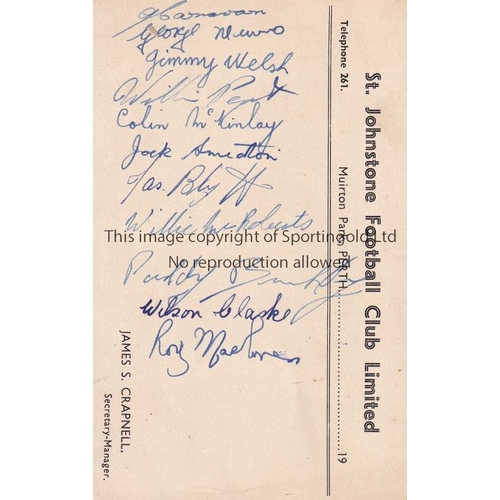 St. Johnstone Football Club Limited
Muirton Park, PERTH. 19
Telephone 261.
Canavan
George Munro
Jimmy Welsh
Willie
Colin McKinlay
Jack Smeaton
Jas. Blyth
Willie McRoberts
This image copyright of Sportingold Ltd
No reproduction allowed
Paddy Buckley
Wilson Clarke
Roy
JAMES S. CRAPNELL,
Secretary-Manager.